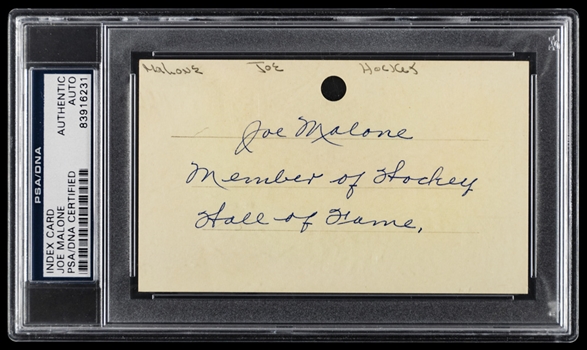 PSA/DNA
INDEX CARD
JOE MALONE
PSA/DNA CERTIFIED
AUTHENTIC
AUTO
83916231
MALONE JOE HOCKEY
Joe Malone
Member of Hockey
Hall of Fame.